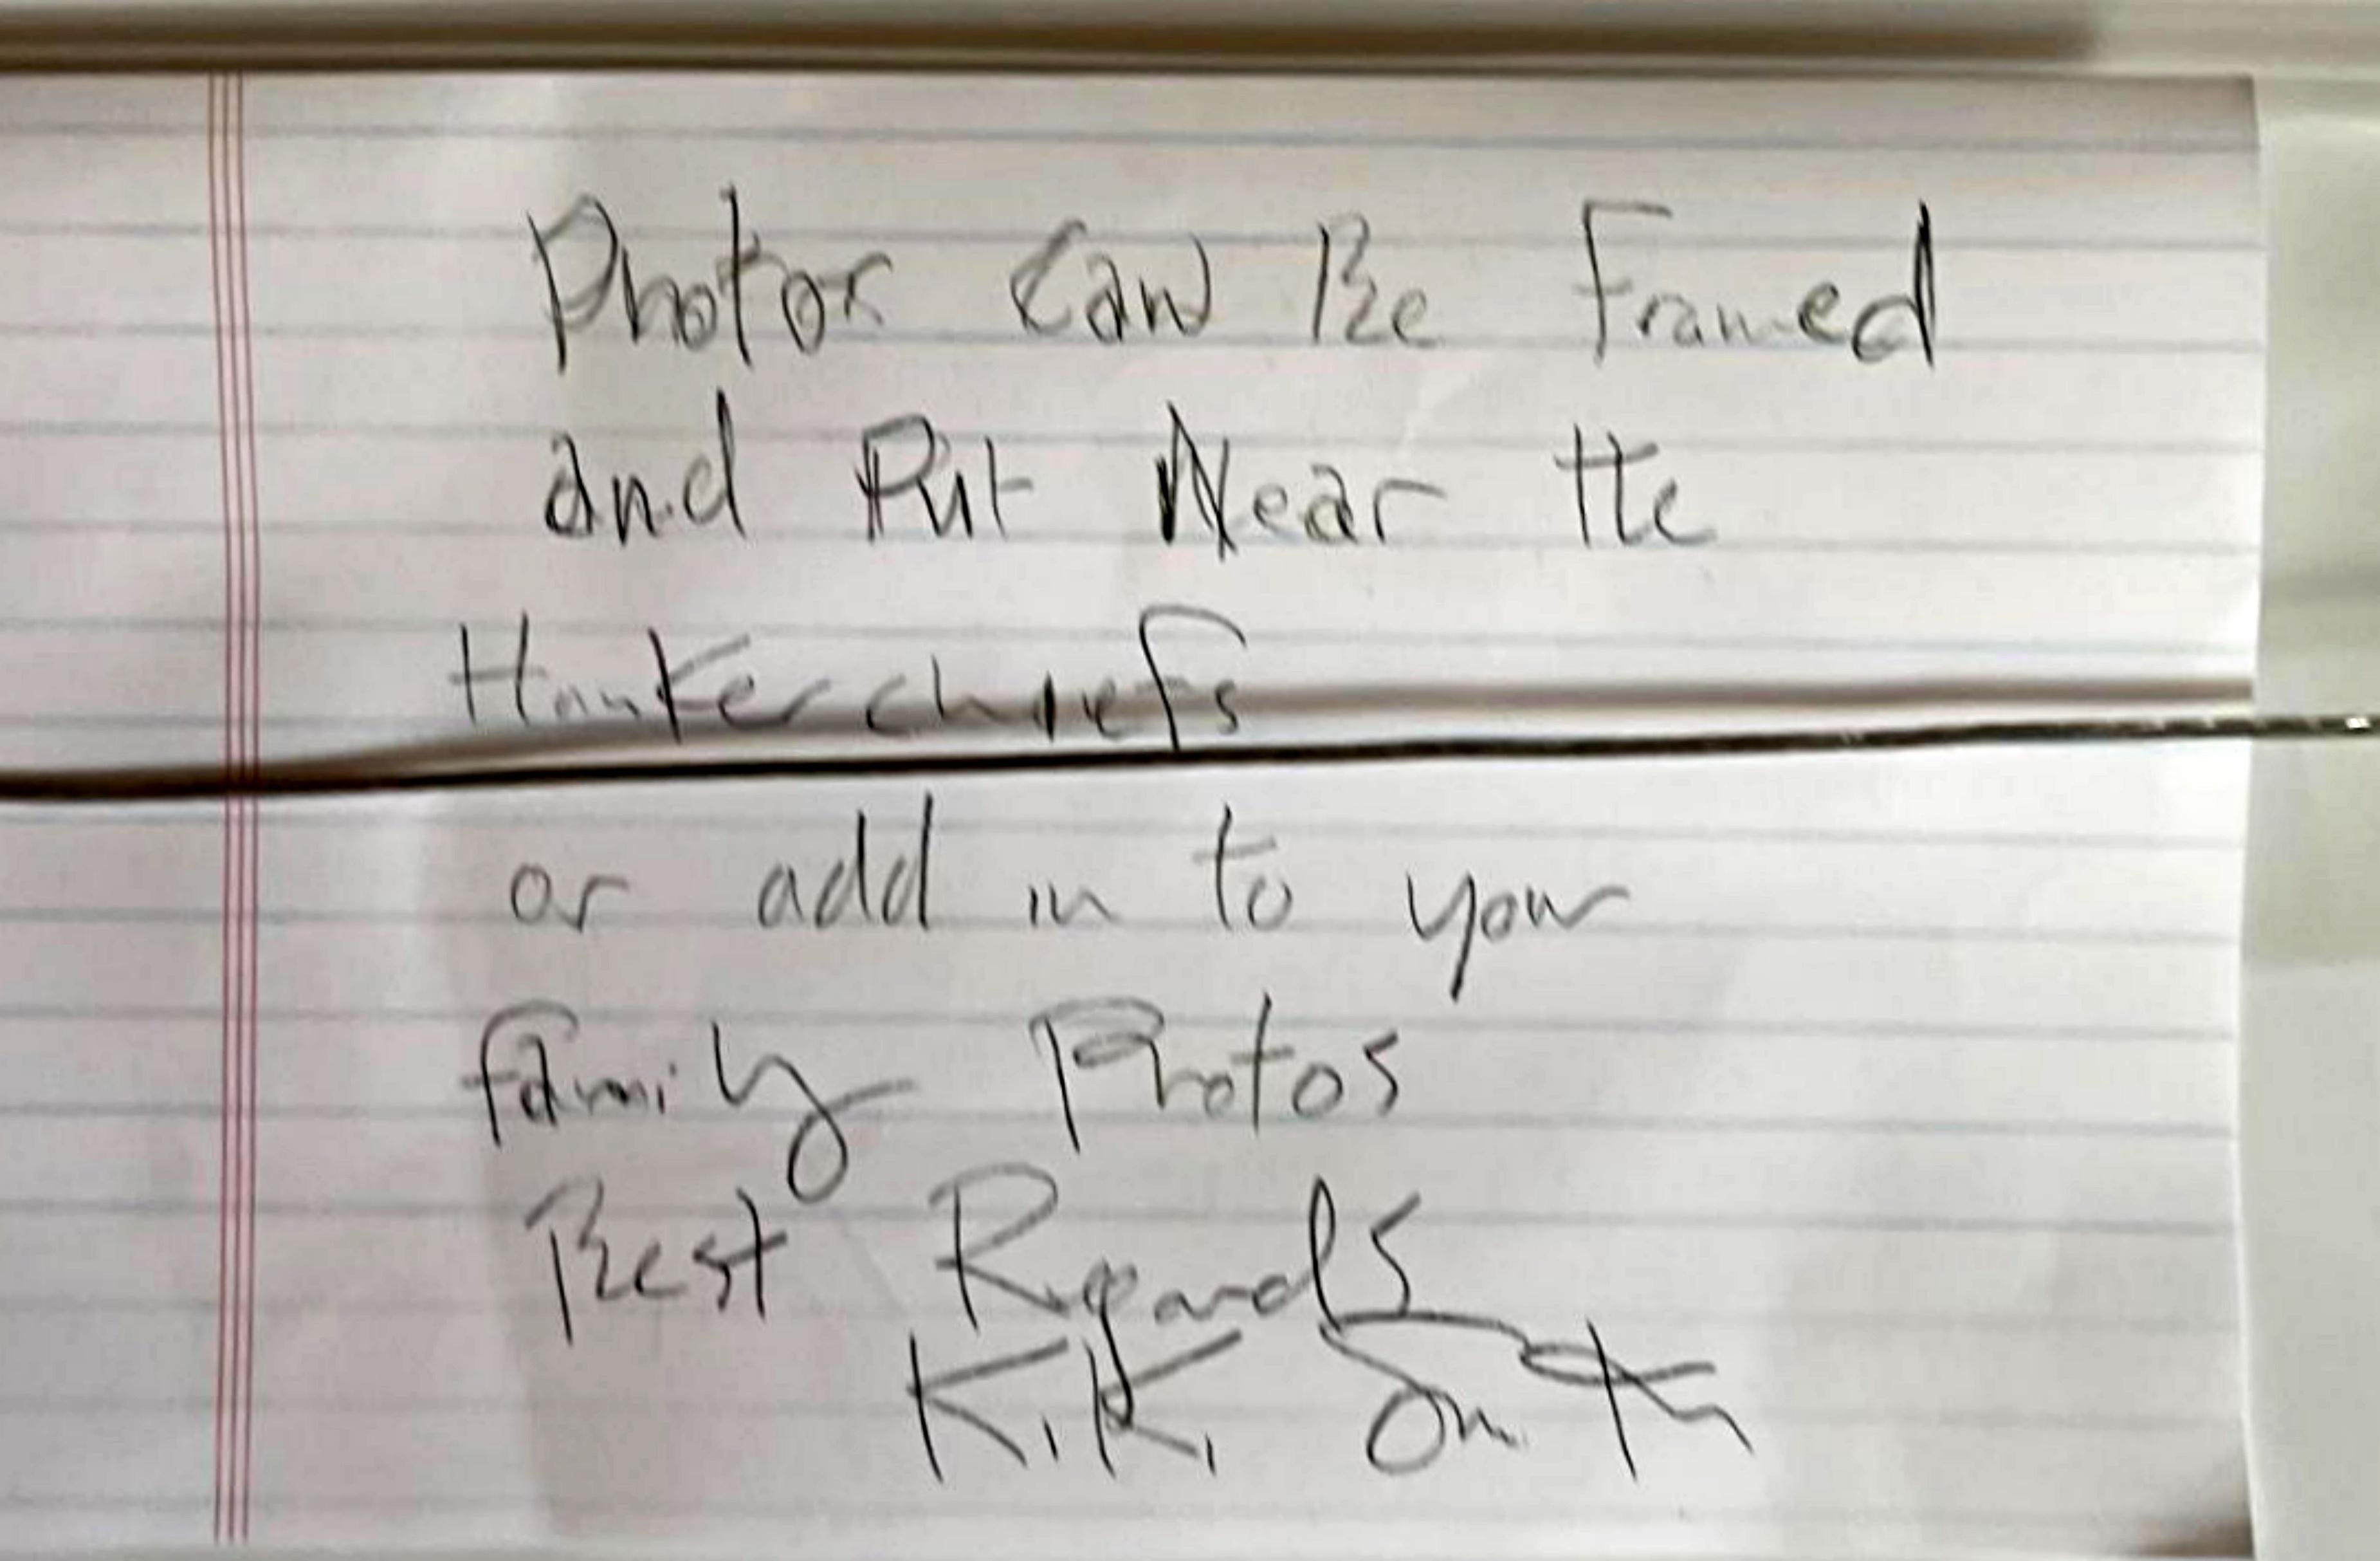 Photos Can Be Framed
and Put Near the
Hankerchiefs
or add in to your
family Photos
Best Regards
K.K. Smith